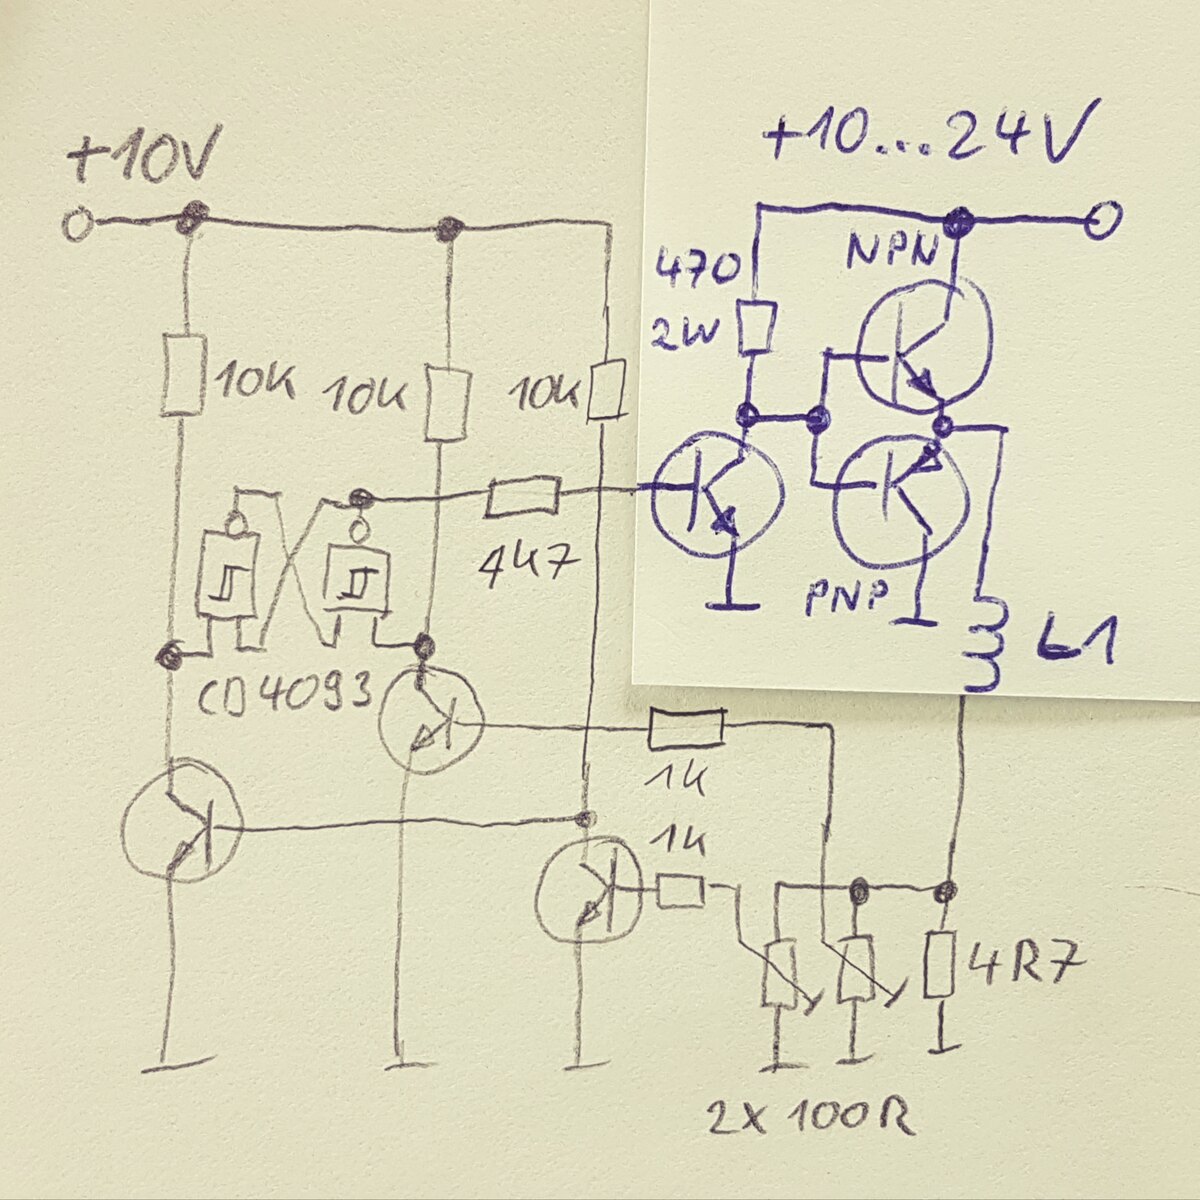 +10V
+10...24V
NPN
470
2W
10K
10K
10K
4K7
PNP
L1
CD4093
1K
1K
4R7
2x100R